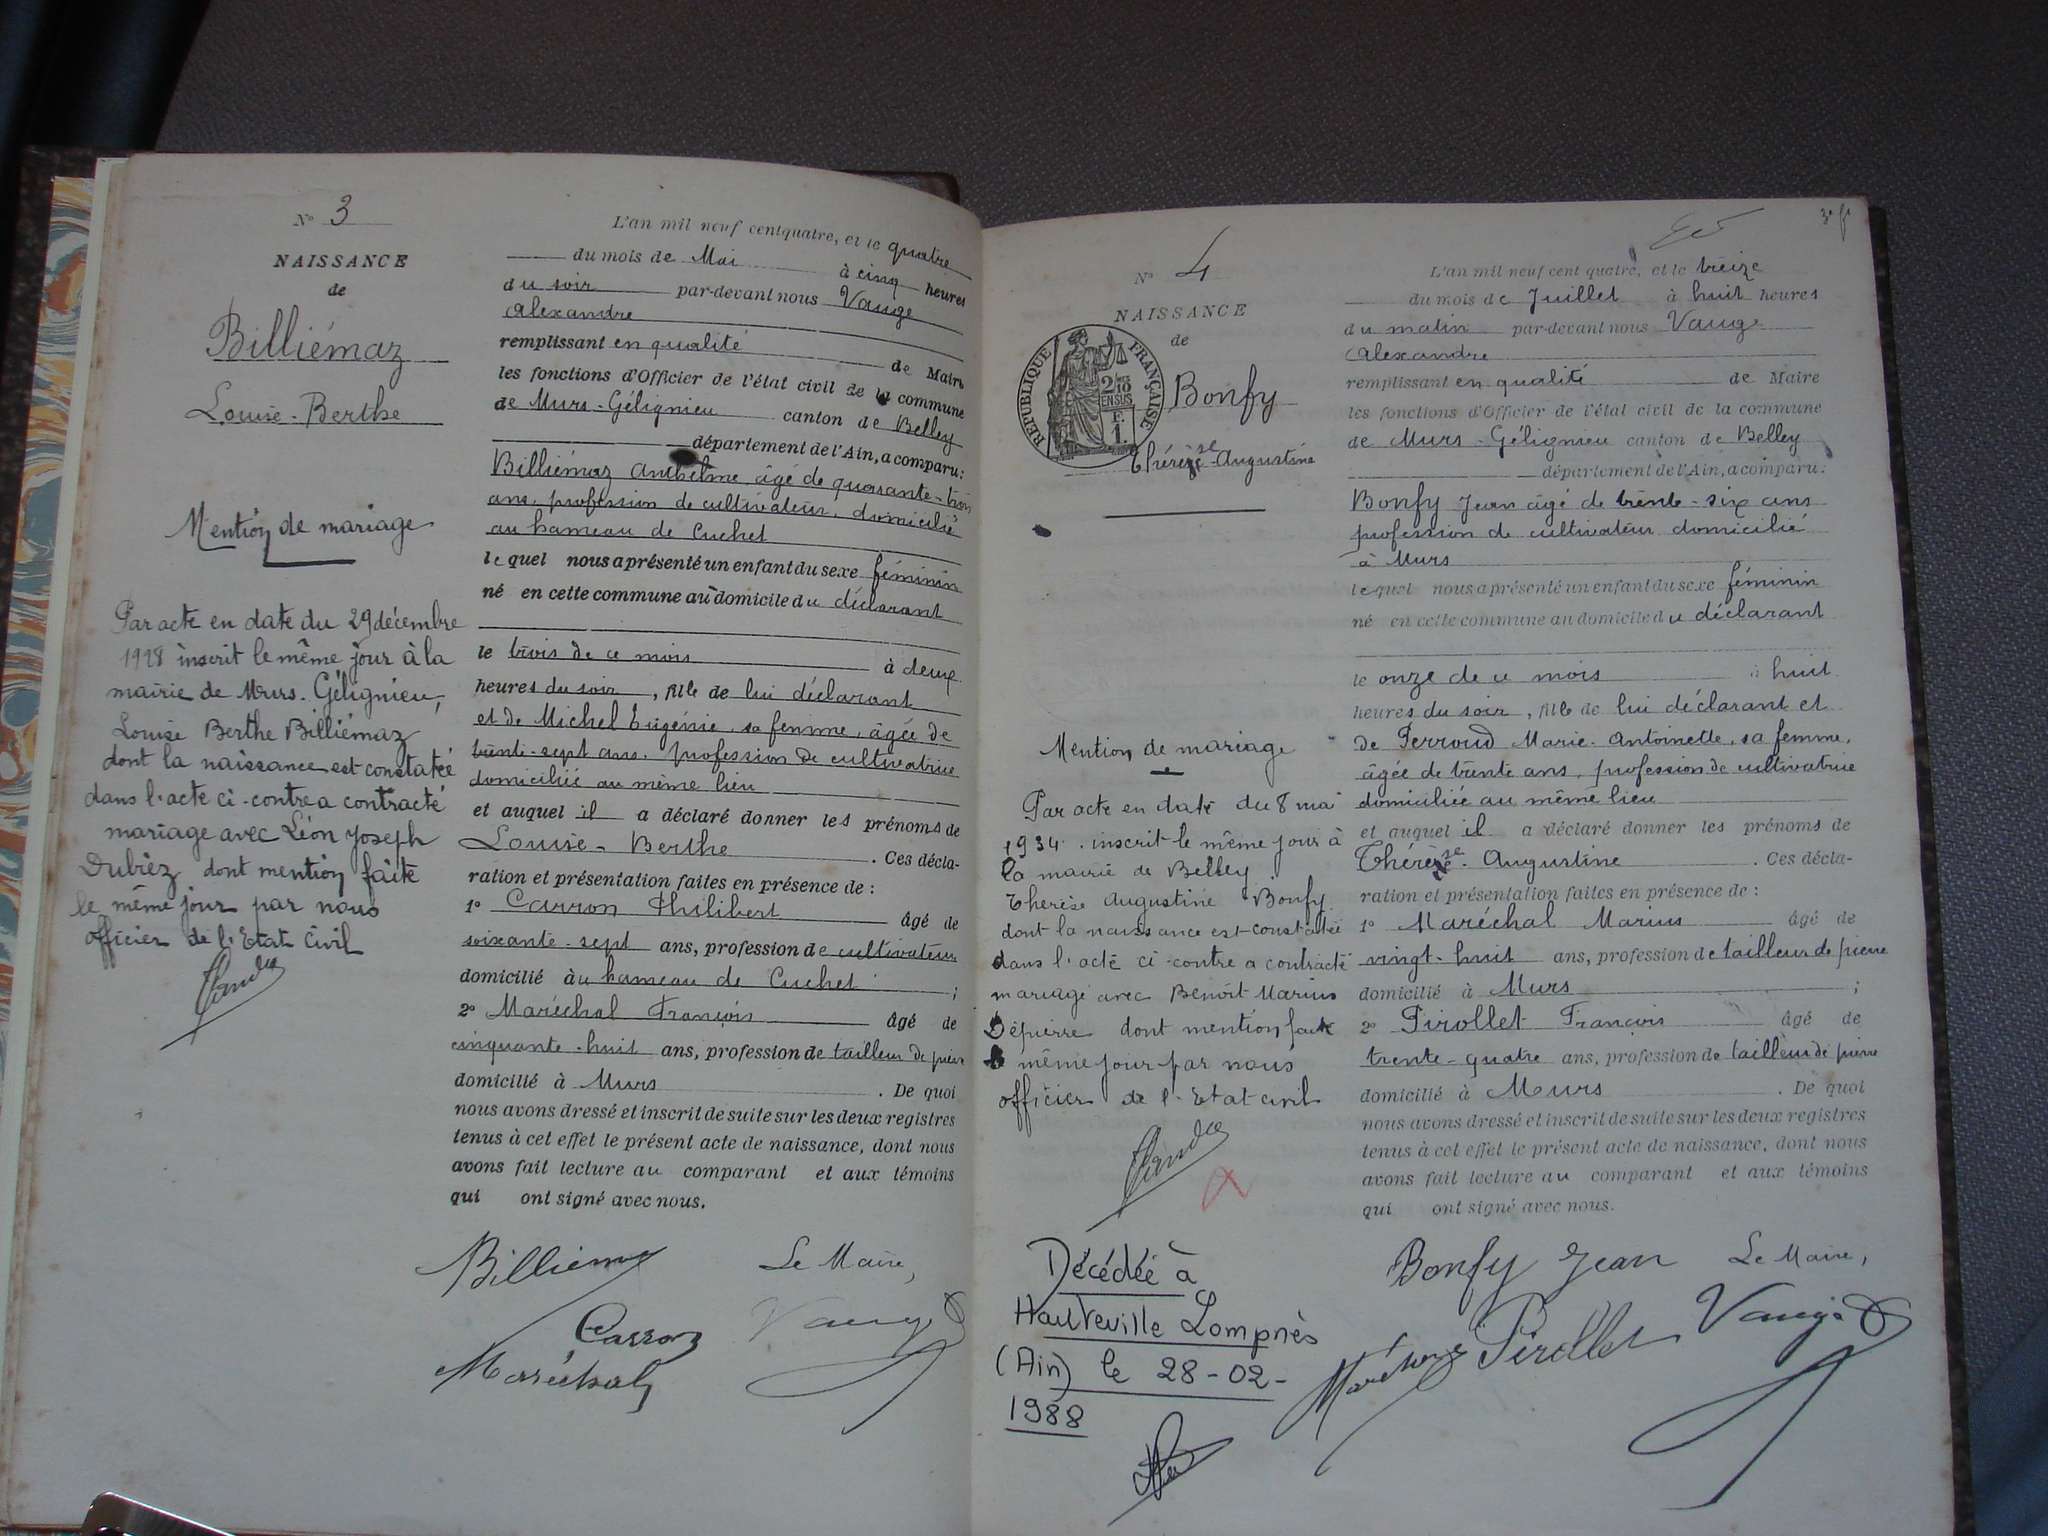 Nº 3
NAISSANCE
de
Billiémaz
Louise-Berthe
Mention de mariage
Par acte en date du 29 décembre
1928 inscrit le même jour à la
mairie de Murs-Gélignieu,
Louise Berthe Billiémaz
dont la naissance est constatée
dans l'acte ci-contre a contracté
mariage avec Léon Joseph
Dubiez dont mention faite
le même jour par nous
officier de l'Etat Civil
L'an mil neuf cent quatre, et le quatre
du mois de Mai à cinq heures
du soir par-devant nous Vauge
Alexandre
remplissant en qualité de Maire
les fonctions d'Officier de l'état civil de la commune
de Murs-Gélignieu canton de Belley
département de l'Ain, a comparu:
Billiémaz Anthelme âgé de quarante-trois
ans, profession de cultivateur, domicilié
au hameau de Cuchet
lequel nous a présenté un enfant du sexe féminin
né en cette commune au domicile du déclarant
le trois de ce mois à deux
heures du soir, fille de lui déclarant
et de Michel Eugénie, sa femme, âgée de
trente-sept ans, profession de cultivatrice
domiciliée au même lieu
et auquel il a déclaré donner les prénoms de
Louise-Berthe. Ces décla-
ration et présentation faites en présence de:
1º Carron Philibert âgé de
soixante-sept ans, profession de cultivateur
domicilié au hameau de Cuchet;
2º Maréchal François âgé de
cinquante-huit ans, profession de tailleur de pierre
domicilié à Murs. De quoi
nous avons dressé et inscrit de suite sur les deux registres
tenus à cet effet le présent acte de naissance, dont nous
avons fait lecture au comparant et aux témoins
qui ont signé avec nous.
Billiémaz Le Maire,
Carron Vauge
Maréchal
3e ft
Nº 4
NAISSANCE
de
RÉPUBLIQUE FRANÇAISE
2/10 EN SUS
F.
1.
Bonfy
Thérèse-Augustine
Mention de mariage
Par acte en date du 8 mai
1934 inscrit le même jour à
la mairie de Belley
Thérèse Augustine Bonfy
dont la naissance est constatée
dans l'acte ci-contre a contracté
mariage avec Benoît Marius
Dépierre dont mention faite
le même jour par nous
officier de l'Etat civil
Décédée à
Hauteville Lompnès
(Ain) le 28-02-
1988
L'an mil neuf cent quatre, et le treize
du mois de Juillet à huit heures
du matin par-devant nous Vauge
Alexandre
remplissant en qualité de Maire
les fonctions d'Officier de l'état civil de la commune
de Murs-Gélignieu canton de Belley
département de l'Ain, a comparu:
Bonfy Jean âgé de trente-six ans
profession de cultivateur domicilié
à Murs
lequel nous a présenté un enfant du sexe féminin
né en cette commune au domicile du déclarant
le onze de ce mois à huit
heures du soir, fille de lui déclarant et
de Perroud Marie-Antoinette, sa femme,
âgée de trente ans, profession de cultivatrice
domiciliée au même lieu
et auquel il a déclaré donner les prénoms de
Thérèse-Augustine. Ces décla-
ration et présentation faites en présence de:
1º Maréchal Marius âgé de
vingt-huit ans, profession de tailleur de pierre
domicilié à Murs;
2º Pirollet François âgé de
trente-quatre ans, profession de tailleur de pierre
domicilié à Murs. De quoi
nous avons dressé et inscrit de suite sur les deux registres
tenus à cet effet le présent acte de naissance, dont nous
avons fait lecture au comparant et aux témoins
qui ont signé avec nous.
Bonfy Jean Le Maire,
Maréchal Pirollet Vauge